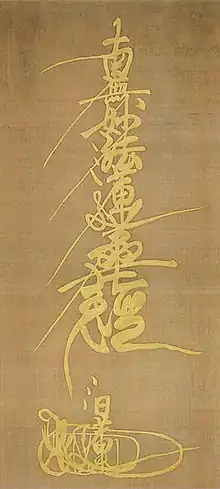 南無妙法蓮華経
日蓮